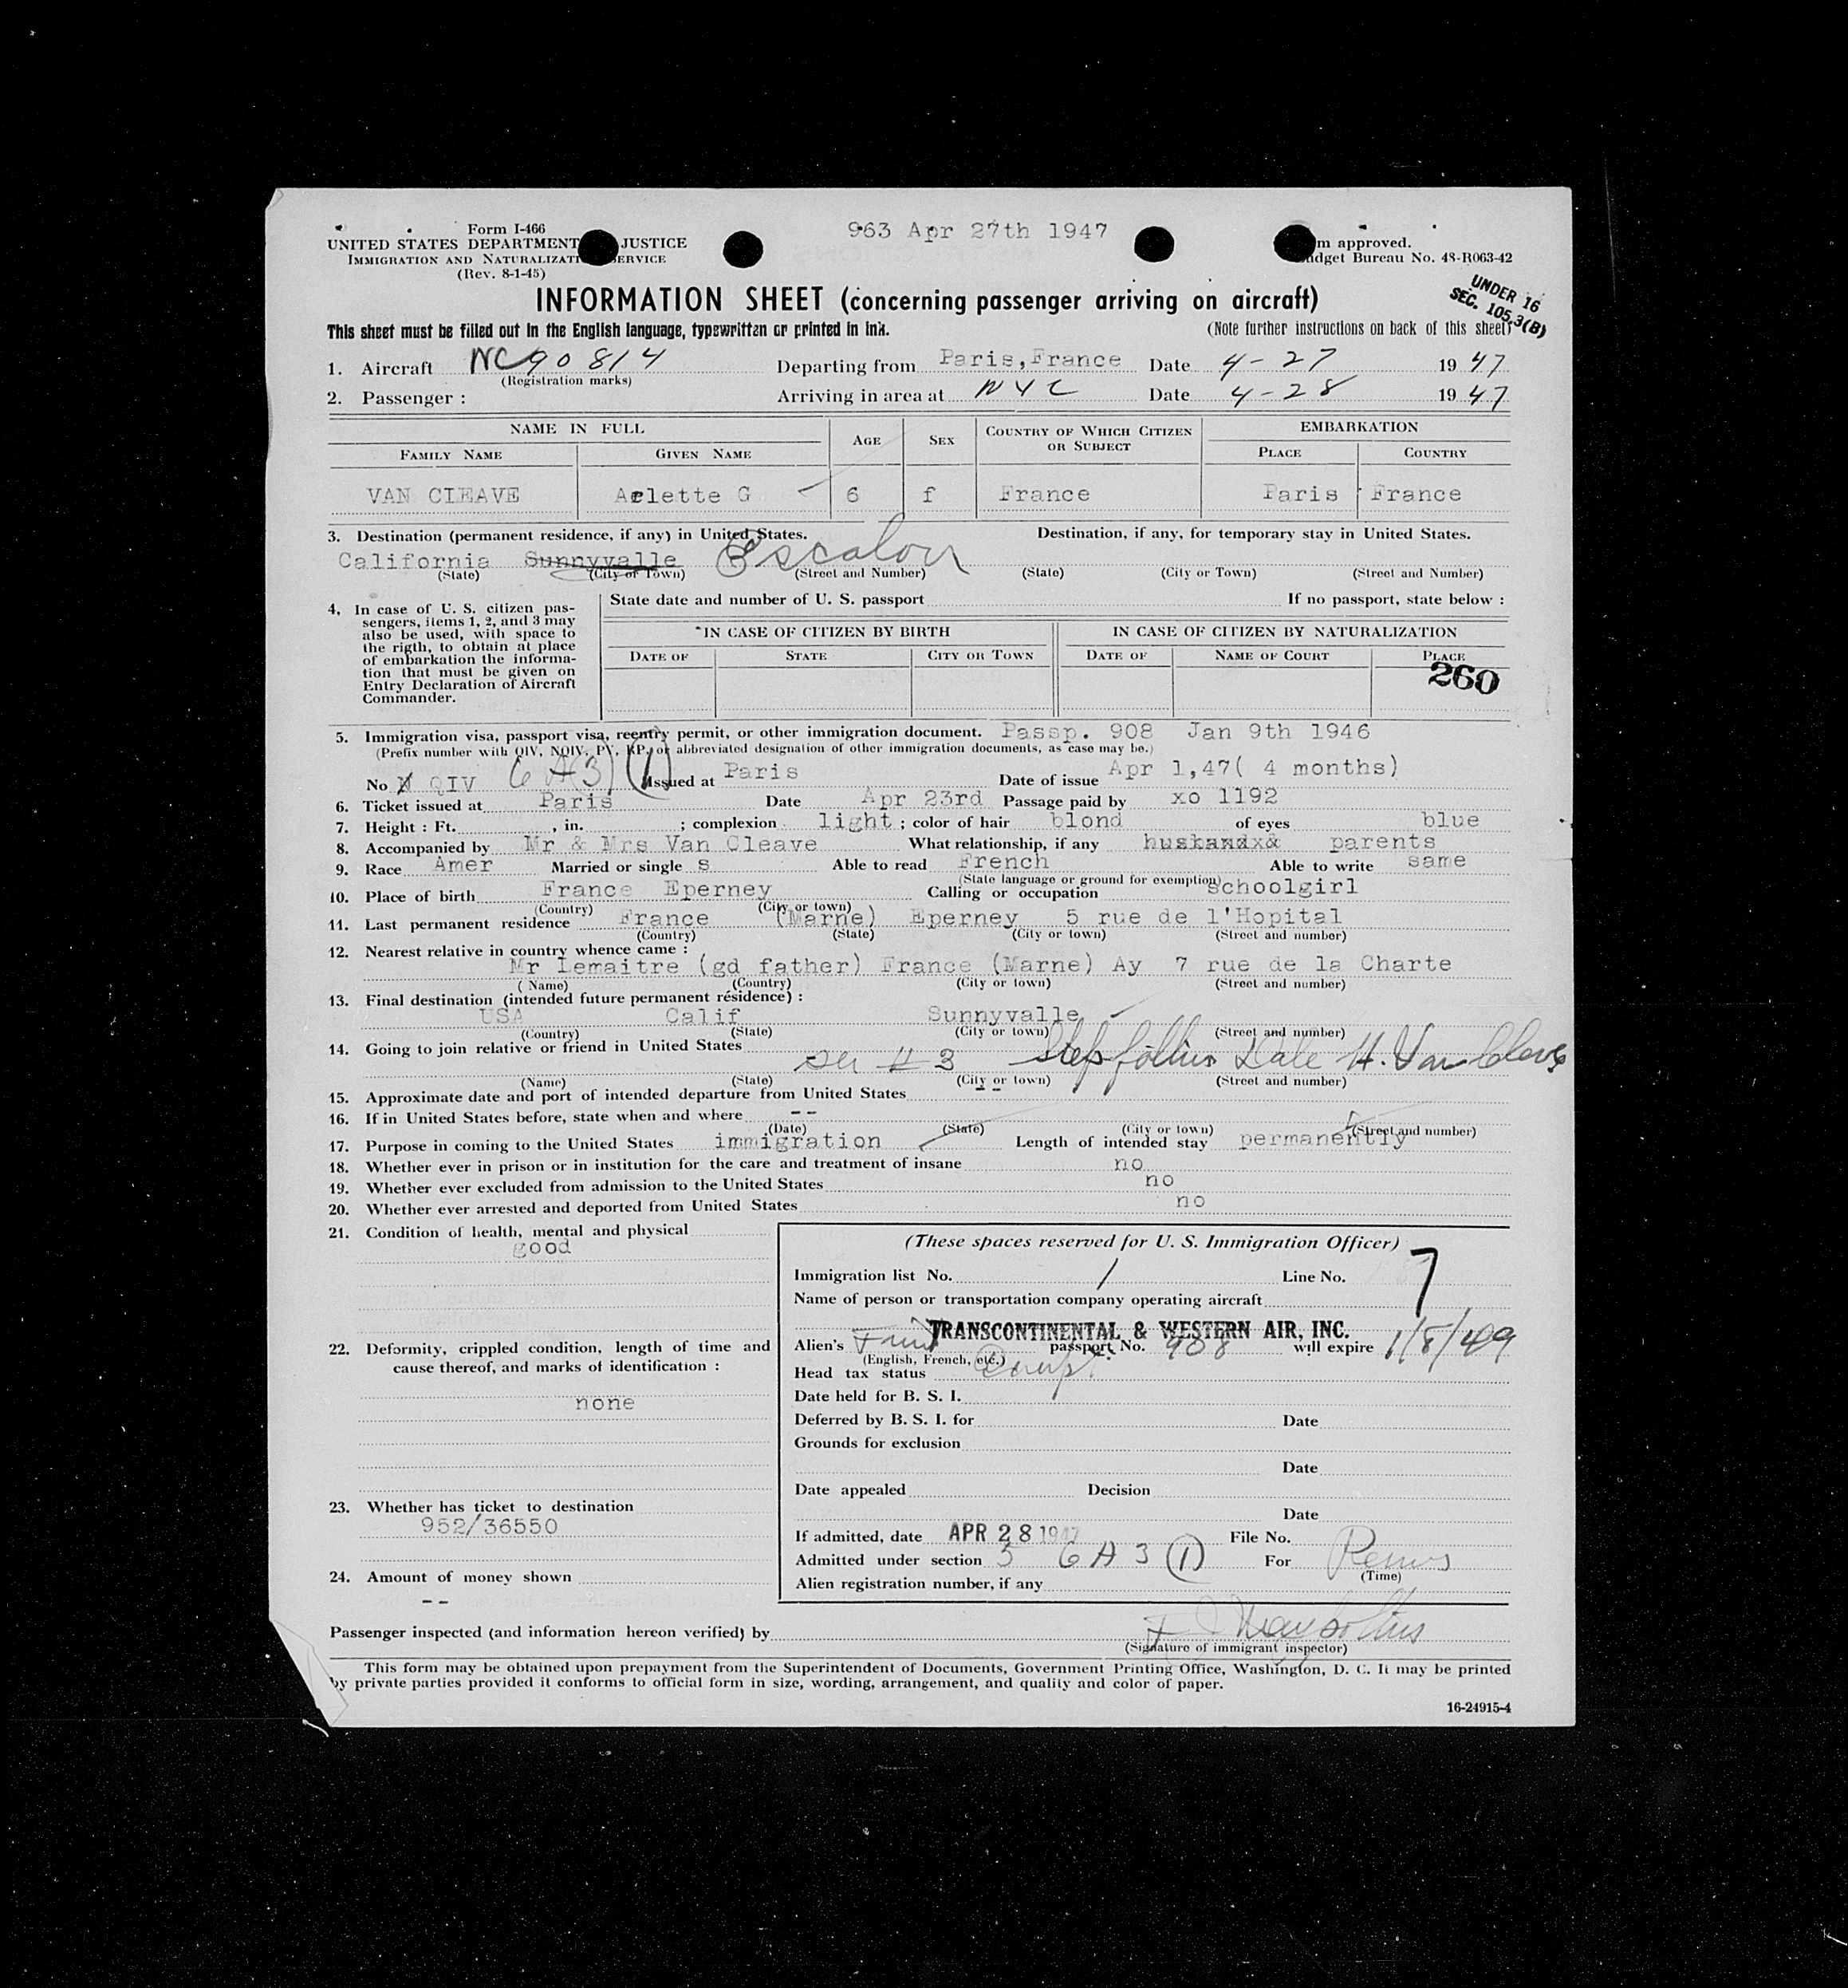 963 Apr 27th 1947
Form I-466
UNITED STATES DEPARTMENT JUSTICE
IMMIGRATION AND NATURALIZATI ERVICE
(Rev. 8-1-45)
m approved.
udget Bureau No. 43-R063-42
UNDER 16
SEC. 105.3(B)
INFORMATION SHEET (concerning passenger arriving on aircraft)
This sheet must be filled out in the English language, typewritten or printed in ink. (Note further instructions on back of this sheet)
1. Aircraft NC90814 Departing from Paris, France Date 4-27 1947
(Registration marks)
2. Passenger : Arriving in area at NYC Date 4-28 1947
NAME IN FULL AGE SEX COUNTRY OF WHICH CITIZEN OR SUBJECT EMBARKATION
FAMILY NAME GIVEN NAME PLACE COUNTRY
VAN CLEAVE Arlette G 6 f France Paris France
3. Destination (permanent residence, if any) in United States. Destination, if any, for temporary stay in United States.
California Sunnyvalle Escalon
(State) (City or Town) (Street and Number) (State) (City or Town) (Street and Number)
4. In case of U. S. citizen pas-
sengers, items 1, 2, and 3 may
also be used, with space to
the rigth, to obtain at place
of embarkation the informa-
tion that must be given on
Entry Declaration of Aircraft
Commander.
State date and number of U. S. passport If no passport, state below :
IN CASE OF CITIZEN BY BIRTH IN CASE OF CITIZEN BY NATURALIZATION
DATE OF STATE CITY OR TOWN DATE OF NAME OF COURT PLACE
260
5. Immigration visa, passport visa, reentry permit, or other immigration document. Passp. 908 Jan 9th 1946
(Prefix number with QIV, NQIV, PV, RP, or abbreviated designation of other immigration documents, as case may be.)
No QIV 6 A(3) (1) Issued at Paris Date of issue Apr 1,47( 4 months)
6. Ticket issued at Paris Date Apr 23rd Passage paid by xo 1192
7. Height : Ft. , in. ; complexion light ; color of hair blond of eyes blue
8. Accompanied by Mr & Mrs Van Cleave What relationship, if any husbandx& parents
9. Race Amer Married or single s Able to read French Able to write same
(State language or ground for exemption)
10. Place of birth France Eperney Calling or occupation schoolgirl
(Country) (City or town)
11. Last permanent residence France (Marne) Eperney 5 rue de l'Hopital
(Country) (State) (City or town) (Street and number)
12. Nearest relative in country whence came :
Mr Lemaitre (gd father) France (Marne) Ay 7 rue de la Charte
( Name) (Country) (City or town) (Street and number)
13. Final destination (intended future permanent résidence) :
USA Calif Sunnyvalle
(Country) (State) (City or town) (Street and number)
14. Going to join relative or friend in United States
# 3 Dale H. Van Cleave
(Name) (State) (City or town) (Street and number)
15. Approximate date and port of intended departure from United States --
16. If in United States before, state when and where --
(Date) (State) (City or town) (Street and number)
17. Purpose in coming to the United States immigration Length of intended stay permanently
18. Whether ever in prison or in institution for the care and treatment of insane no
19. Whether ever excluded from admission to the United States no
20. Whether ever arrested and deported from United States no
21. Condition of health, mental and physical
good
22. Deformity, crippled condition, length of time and
cause thereof, and marks of identification :
none
23. Whether has ticket to destination
952/36550
24. Amount of money shown
--
(These spaces reserved for U. S. Immigration Officer)
Immigration list No. 1 Line No. 7
Name of person or transportation company operating aircraft
TRANSCONTINENTAL & WESTERN AIR, INC.
Alien's passport No. 908 will expire 1/8/49
(English, French, etc.)
Head tax status
Date held for B. S. I.
Deferred by B. S. I. for Date
Grounds for exclusion
Date
Date appealed Decision
Date
If admitted, date APR 28 1947 File No.
Admitted under section 3 6 A 3 (1) For
(Time)
Alien registration number, if any
Passenger inspected (and information hereon verified) by
(Signature of immigrant inspector)
This form may be obtained upon prepayment from the Superintendent of Documents, Government Printing Office, Washington, D. C. It may be printed
by private parties provided it conforms to official form in size, wording, arrangement, and quality and color of paper.
16-24915-4